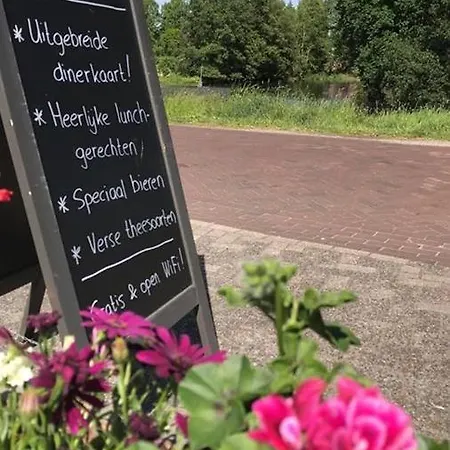 * Uitgebreide
dinerkaart!
* Heerlijke lunch-
gerechten
* Speciaal bieren
* Verse theesoorten
Gratis & open WiFi!